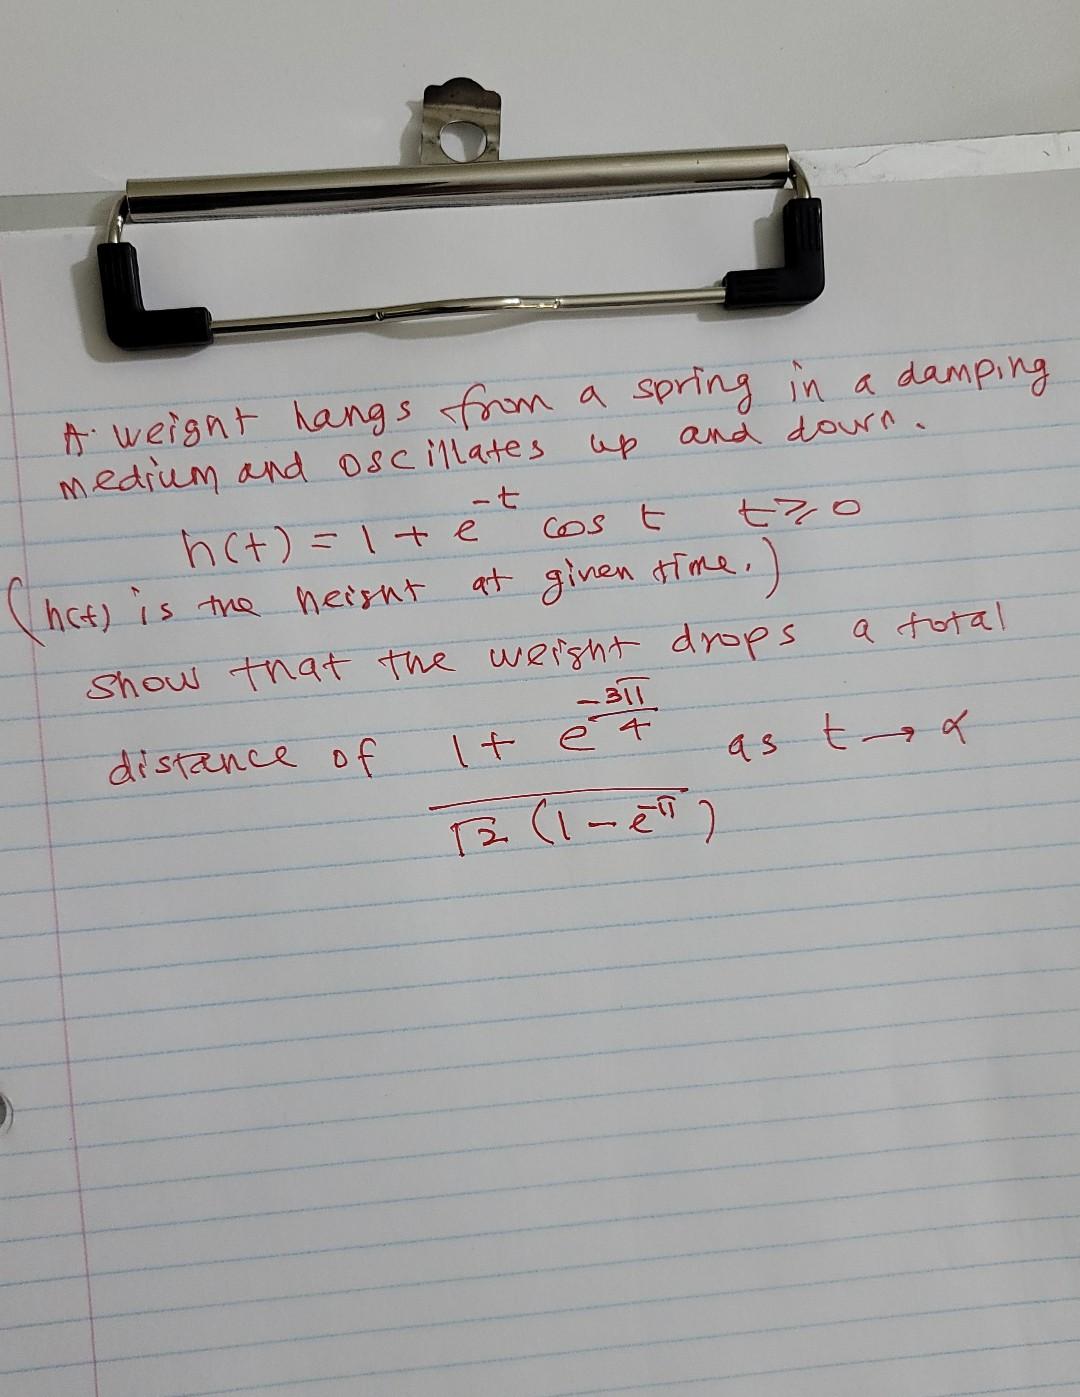 A weight hangs from a spring in a damping
medium and oscillates up and down.
h(t) = 1 + e^{-t} cos t t ⩾ 0
(h(t) is the height at given time.)
show that the weight drops a total
distance of 1 + e^{-3π/4} as t → α
√2 (1 - e^{-π})